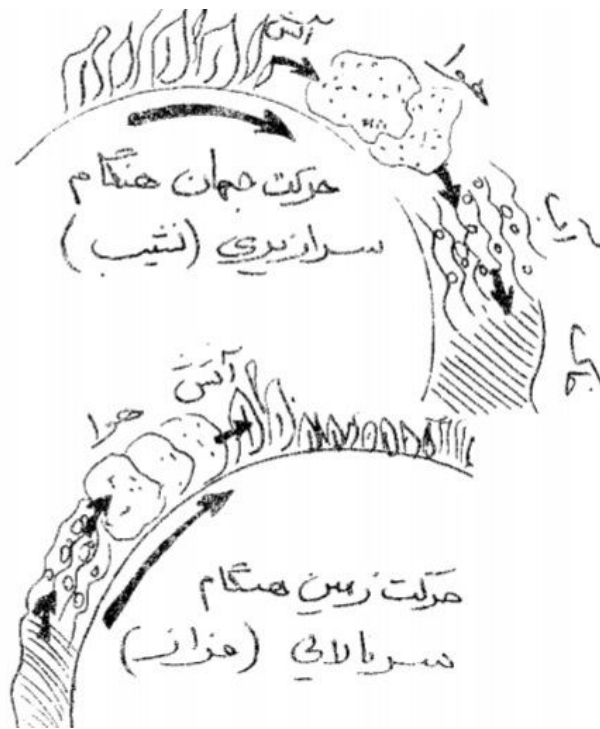 آتش
هوا
دریا
حرکت جهان هنگام
سرازیری (نشیب)
آتش
هوا
حرکت زمین هنگام
سربالائی (فراز)